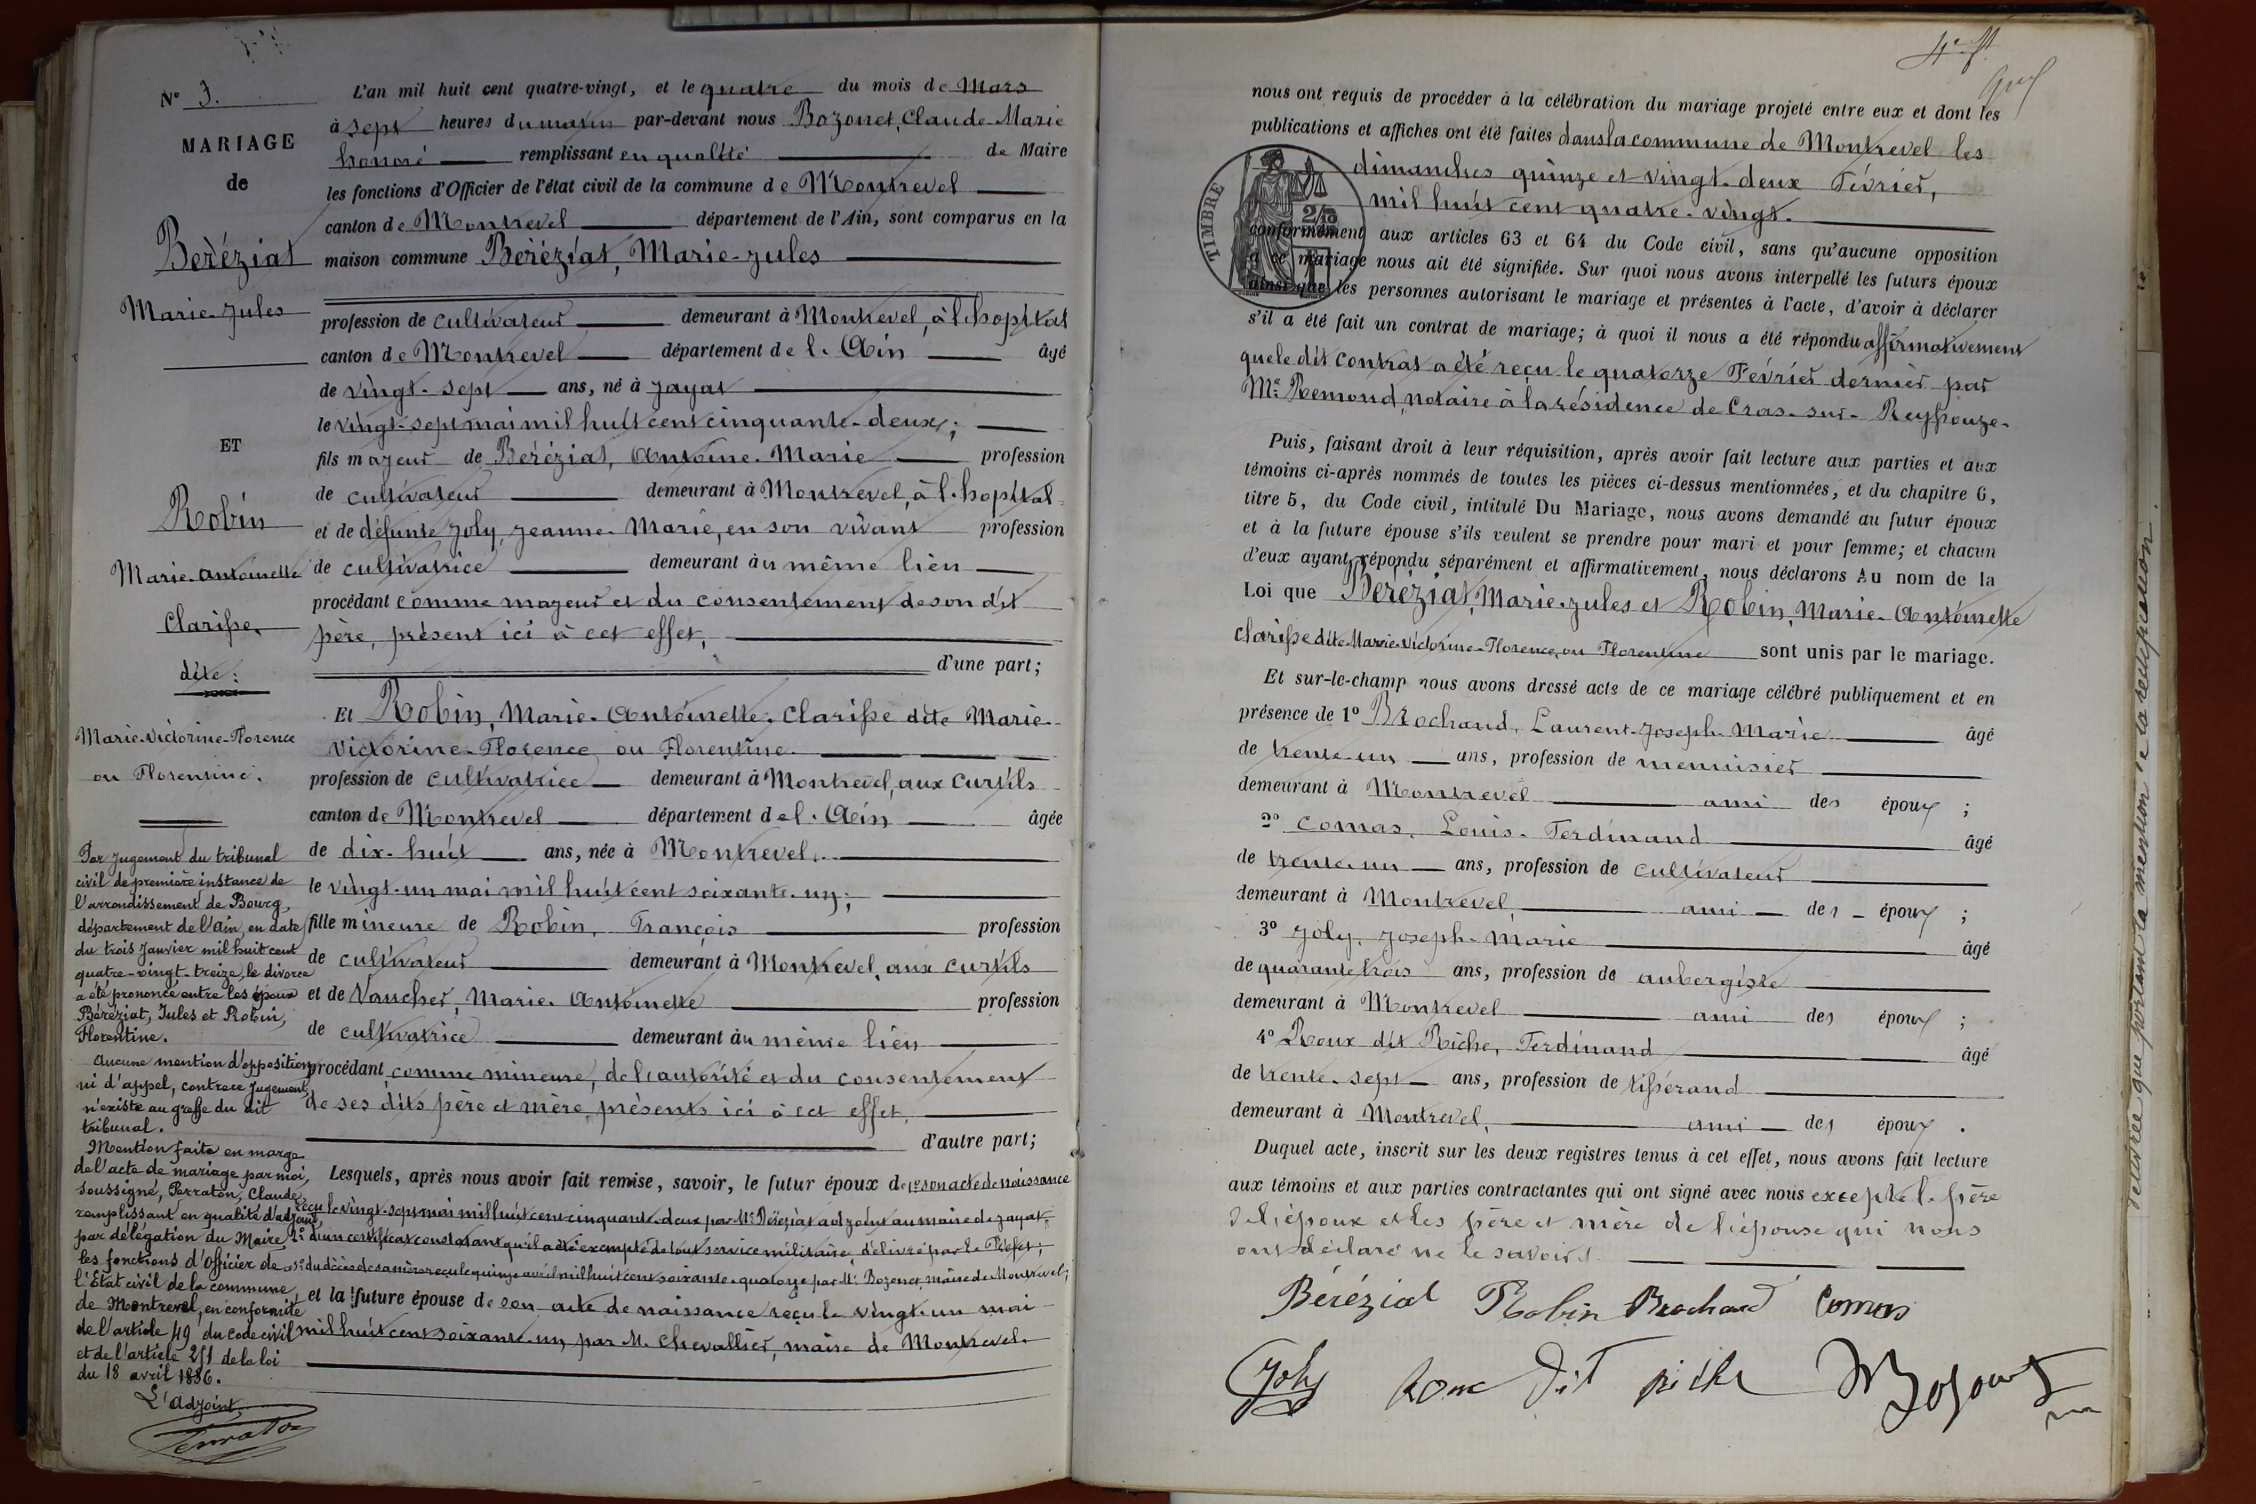 N° 3.
MARIAGE
de
Béréziat
Marie-Jules
ET
Robin
Marie-Antoinette
Clarisse,
dite:
Marie-Victorine-Florence
ou Florentine.
Par jugement du tribunal
civil de première instance de
l'arrondissement de Bourg,
département de l'Ain, en date
du trois Janvier mil huit cent
quatre-vingt-treize, le divorce
a été prononcé entre les époux
Béréziat, Jules et Robin,
Florentine.
Aucune mention d'opposition
ni d'appel, contre ce Jugement,
n'existe au greffe du dit
tribunal.
Mention faite en marge
de l'acte de mariage par moi,
soussigné, Perraton, Claude,
remplissant en qualité d'adjoint,
par délégation du Maire,
les fonctions d'Officier de
l'Etat civil de la commune
de Montrevel, en conformité
de l'article 49 du code civil
et de l'article 251 de la loi
du 18 avril 1886.
L'adjoint,
Perraton
L'an mil huit cent quatre-vingt, et le quatre du mois de Mars
à sept heures du matin par-devant nous Bozonet, Claude-Marie
honoré remplissant en qualité de Maire
les fonctions d'Officier de l'état civil de la commune de Montrevel
canton de Montrevel département de l'Ain, sont comparus en la
maison commune Béréziat, Marie-Jules
profession de cultivateur demeurant à Montrevel, à l'hopital
canton de Montrevel département de l'Ain âgé
de vingt-sept ans, né à Jayat
le vingt-sept mai mil huit cent cinquante-deux;
fils majeur de Béréziat, Antoine-Marie profession
de cultivateur demeurant à Montrevel, à l'hopital
et de défunte Joly, Jeanne-Marie, en son vivant profession
de cultivatrice demeurant au même lieu
procédant comme majeur et du consentement de son dit
père, présent ici à cet effet,
d'une part;
Et Robin, Marie-Antoinette-Clarisse dite Marie-
Victorine-Florence ou Florentine.
profession de cultivatrice demeurant à Montrevel, aux Curtils
canton de Montrevel département de l'Ain âgée
de dix-huit ans, née à Montrevel,
le vingt-un mai mil huit cent soixante-un;
fille mineure de Robin, François profession
de cultivateur demeurant à Montrevel, aux Curtils
et de Vaucher, Marie-Antoinette profession
de cultivatrice demeurant au même lieu
procédant comme mineure, de l'autorité et du consentement
de ses dits père et mère, présents ici à cet effet,
d'autre part;
Lesquels, après nous avoir fait remise, savoir, le futur époux de 1° son acte de naissance
reçu le vingt-sept mai mil huit cent cinquante-deux par Mr Béréziat adjoint au maire de Jayat;
2° d'un certificat constatant qu'il a été exempté de tout service militaire, délivré par le Préfet;
3° du décès de sa mère reçu le quinze avril mil huit cent soixante-quatorze par Mr Bozonet maire de Montrevel;
et la future épouse de son acte de naissance reçu le vingt-un mai
mil huit cent soixante-un, par M. Chevallier, maire de Montrevel.
nous ont requis de procéder à la célébration du mariage projeté entre eux et dont les
publications et affiches ont été faites dans la commune de Montrevel les
dimanches quinze et vingt-deux Février,
mil huit cent quatre-vingt.
TIMBRE
conformément aux articles 63 et 64 du Code civil, sans qu'aucune opposition
à ce mariage nous ait été signifiée. Sur quoi nous avons interpellé les futurs époux
ainsi que les personnes autorisant le mariage et présentes à l'acte, d'avoir à déclarer
s'il a été fait un contrat de mariage; à quoi il nous a été répondu affirmativement
que le dit contrat a été reçu le quatorze Février dernier par
Me Remond, notaire à la résidence de Cras-sur-Reyssouze.
Puis, faisant droit à leur réquisition, après avoir fait lecture aux parties et aux
témoins ci-après nommés de toutes les pièces ci-dessus mentionnées, et du chapitre 6,
titre 5, du Code civil, intitulé Du Mariage, nous avons demandé au futur époux
et à la future épouse s'ils veulent se prendre pour mari et pour femme; et chacun
d'eux ayant répondu séparément et affirmativement, nous déclarons Au nom de la
Loi que Béréziat, Marie-Jules et Robin, Marie-Antoinette
Clarisse dite Marie-Victorine-Florence, ou Florentine sont unis par le mariage.
Et sur-le-champ nous avons dressé acte de ce mariage célébré publiquement et en
présence de 1° Brochand, Laurent-Joseph-Marie âgé
de trente-un ans, profession de menuisier
demeurant à Montrevel ami des époux;
2° Comas, Louis-Ferdinand âgé
de trente-un ans, profession de cultivateur
demeurant à Montrevel, ami des époux;
3° Joly, Joseph-Marie âgé
de quarante trois ans, profession de aubergiste
demeurant à Montrevel ami des époux;
4° Roux dit Riche, Ferdinand âgé
de trente-sept ans, profession de tisserand
demeurant à Montrevel, ami des époux.
Duquel acte, inscrit sur les deux registres tenus à cet effet, nous avons fait lecture
aux témoins et aux parties contractantes qui ont signé avec nous excepté le père
de l'époux et les père et mère de l'épouse qui nous
ont déclaré ne le savoir.
Béréziat Robin Brochand Comas
Joly Roux dit riche Bozonet